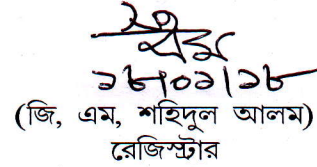 ১৮/০১/১৮
(জি, এম, শহিদুল আলম)
রেজিস্ট্রার